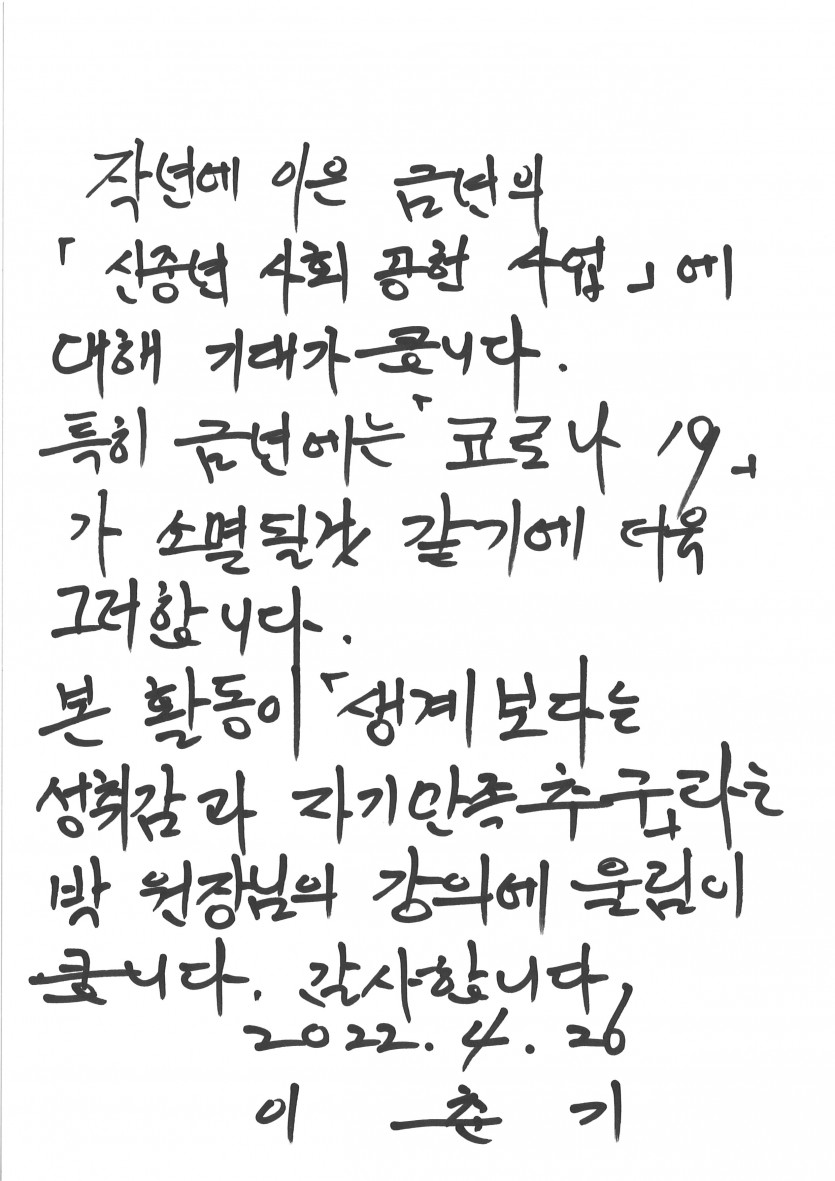 작년에 이은 금년의
「신중년 사회 공헌 사업」에
대해 기대가 큽니다.
특히 금년에는「코로나 19」
가 소멸될것 같기에 더욱
그러합니다.
본 활동이「생계보다는
성취감과 자기만족추구」라는
박 원장님의 강의에 울림이
큽니다. 감사합니다.
2022. 4. 26
이 춘 기